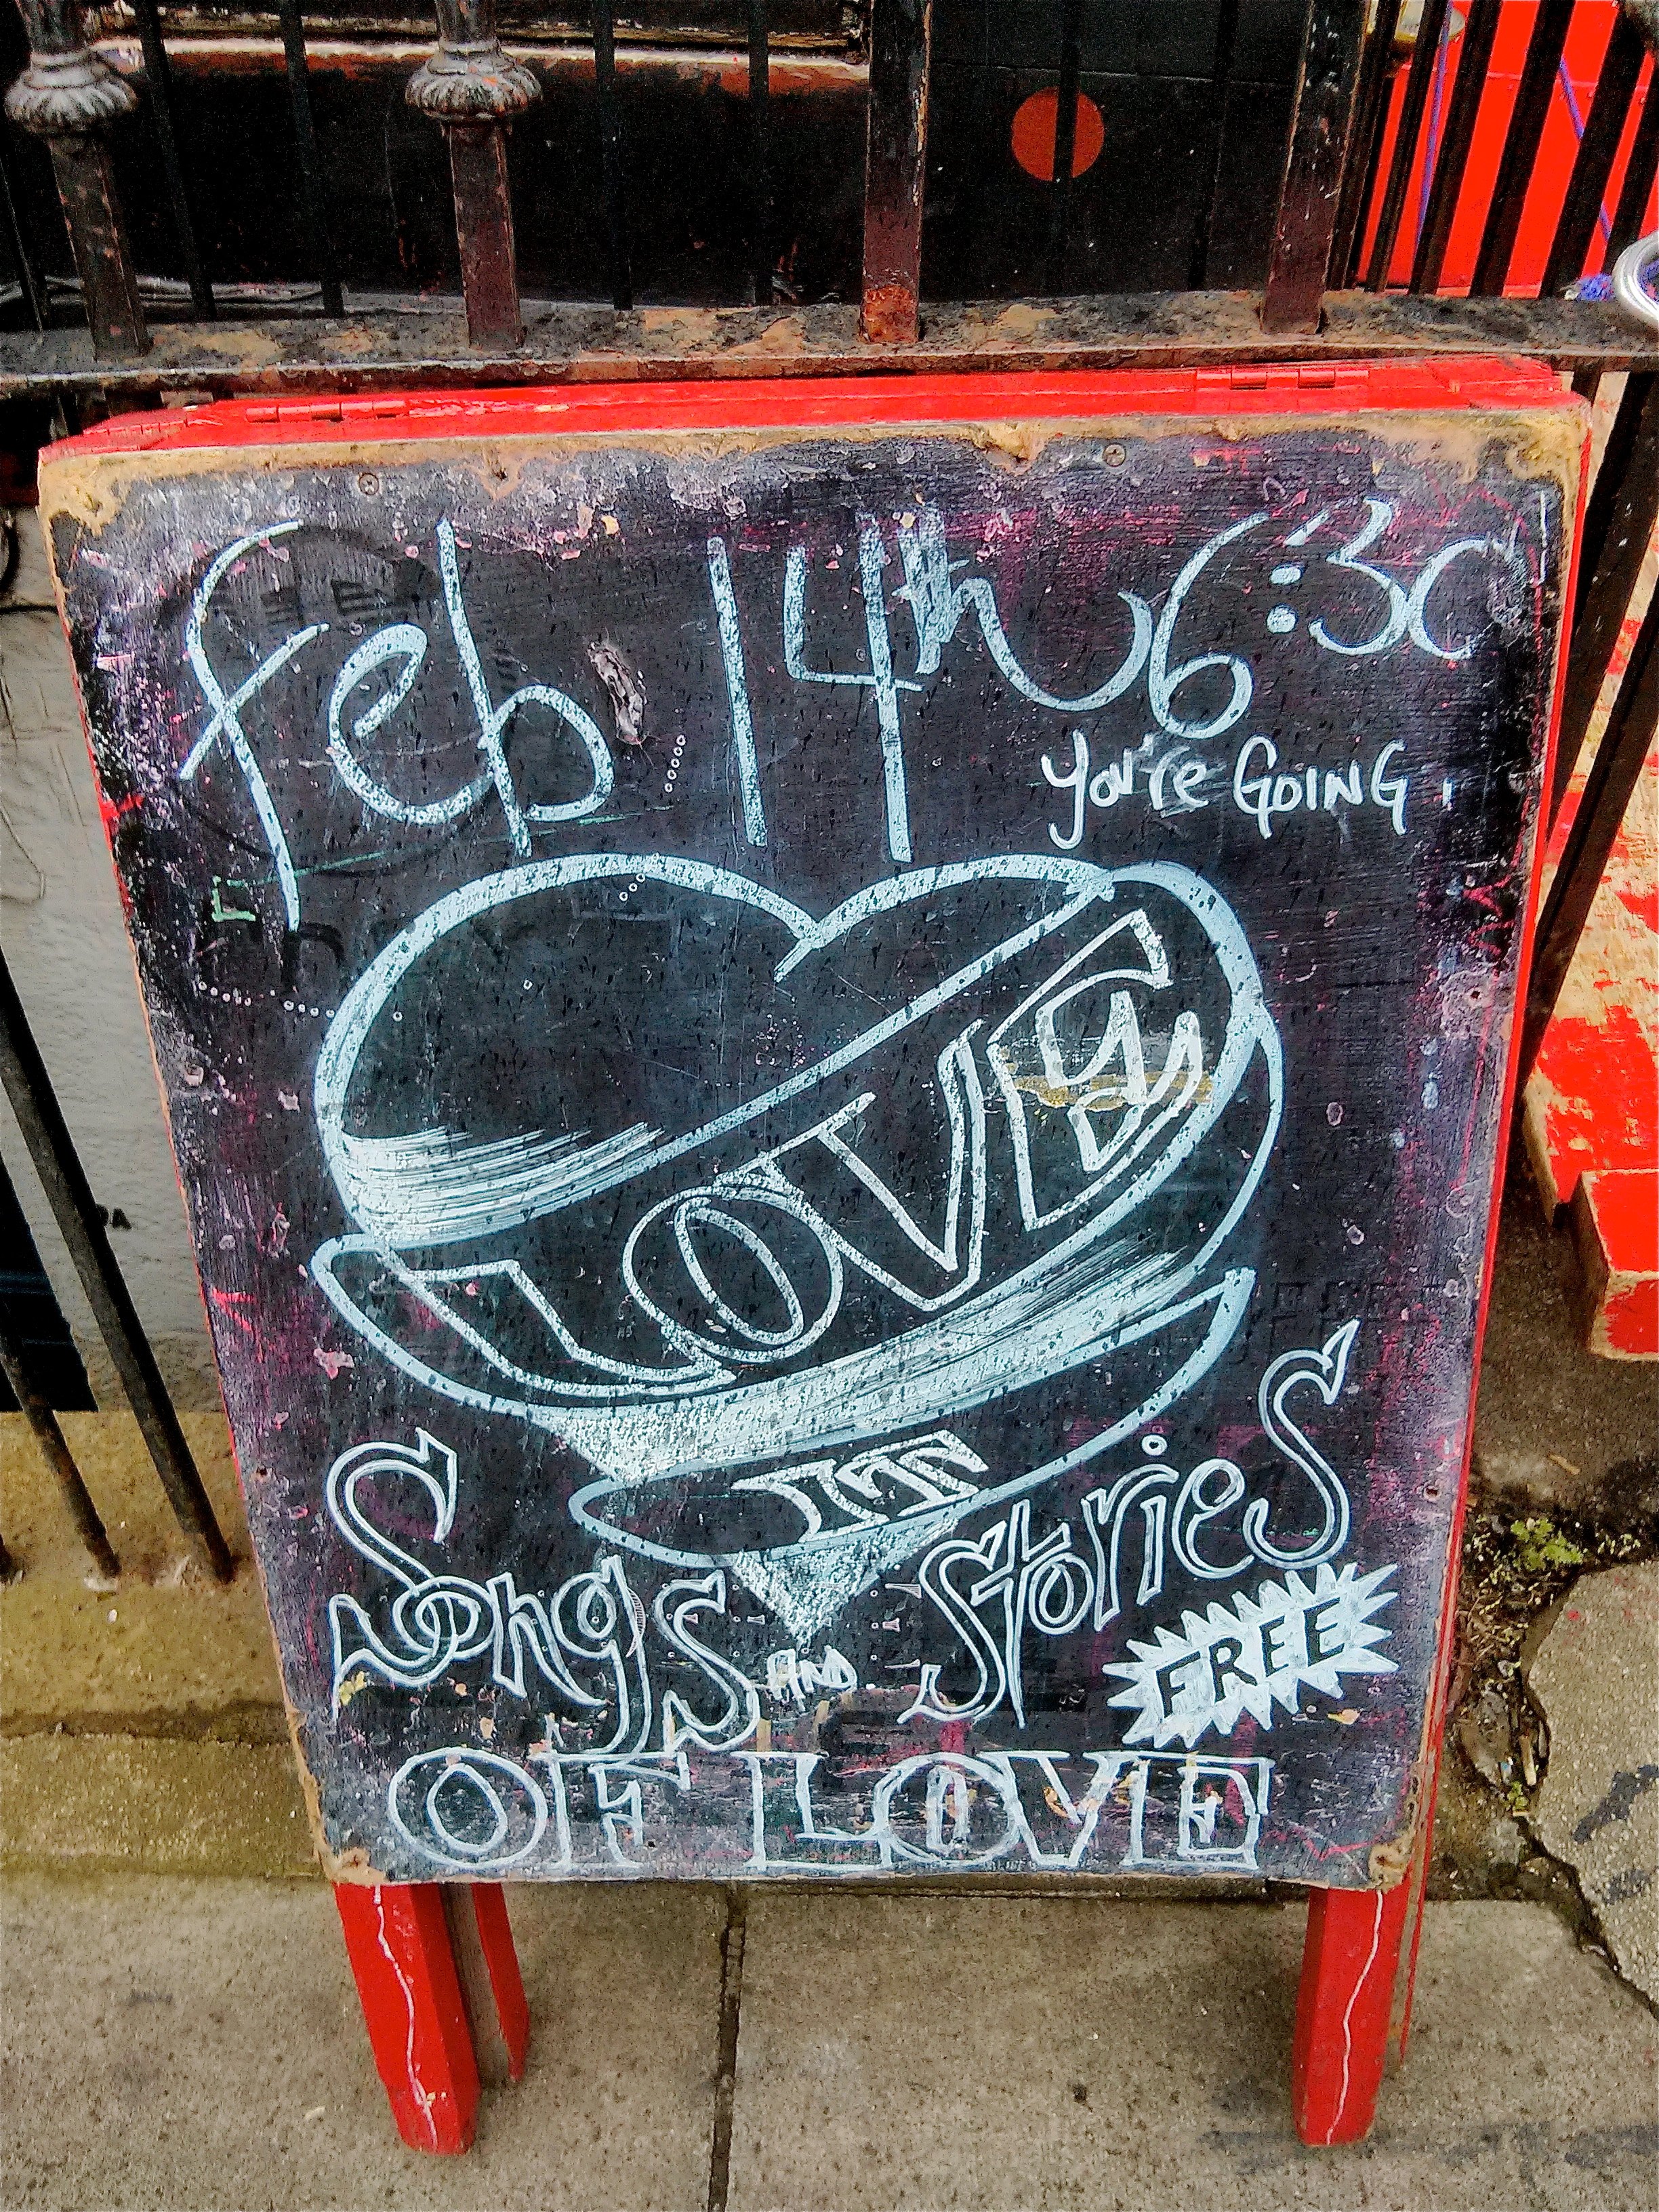 Feb 14th 6:30
you're GOING
LOVE
IT
Songs AND Stories
FREE
OF LOVE